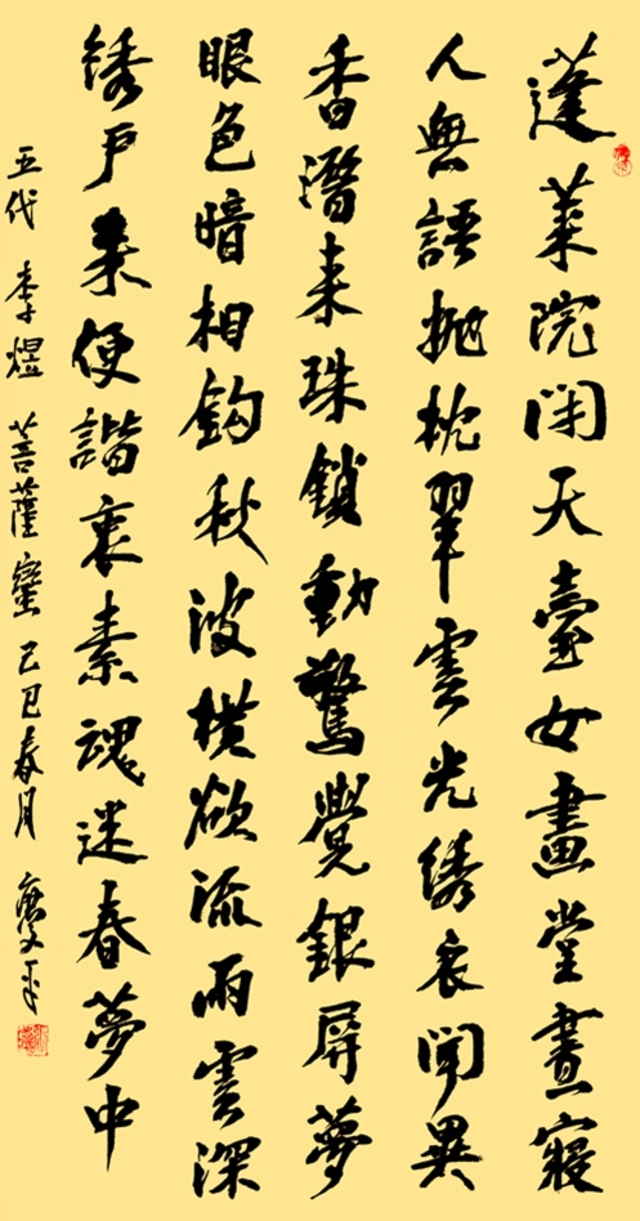 蓬萊院閉天臺女畫堂晝寢
人無語抛枕翠雲光綉衣聞異
香潛来珠鎖動驚覺銀屏夢
眼色暗相鈎秋波横欲流雨雲深
锈户来便諧衷素魂迷春夢中
五代 李煜 菩薩蠻 己巳春月